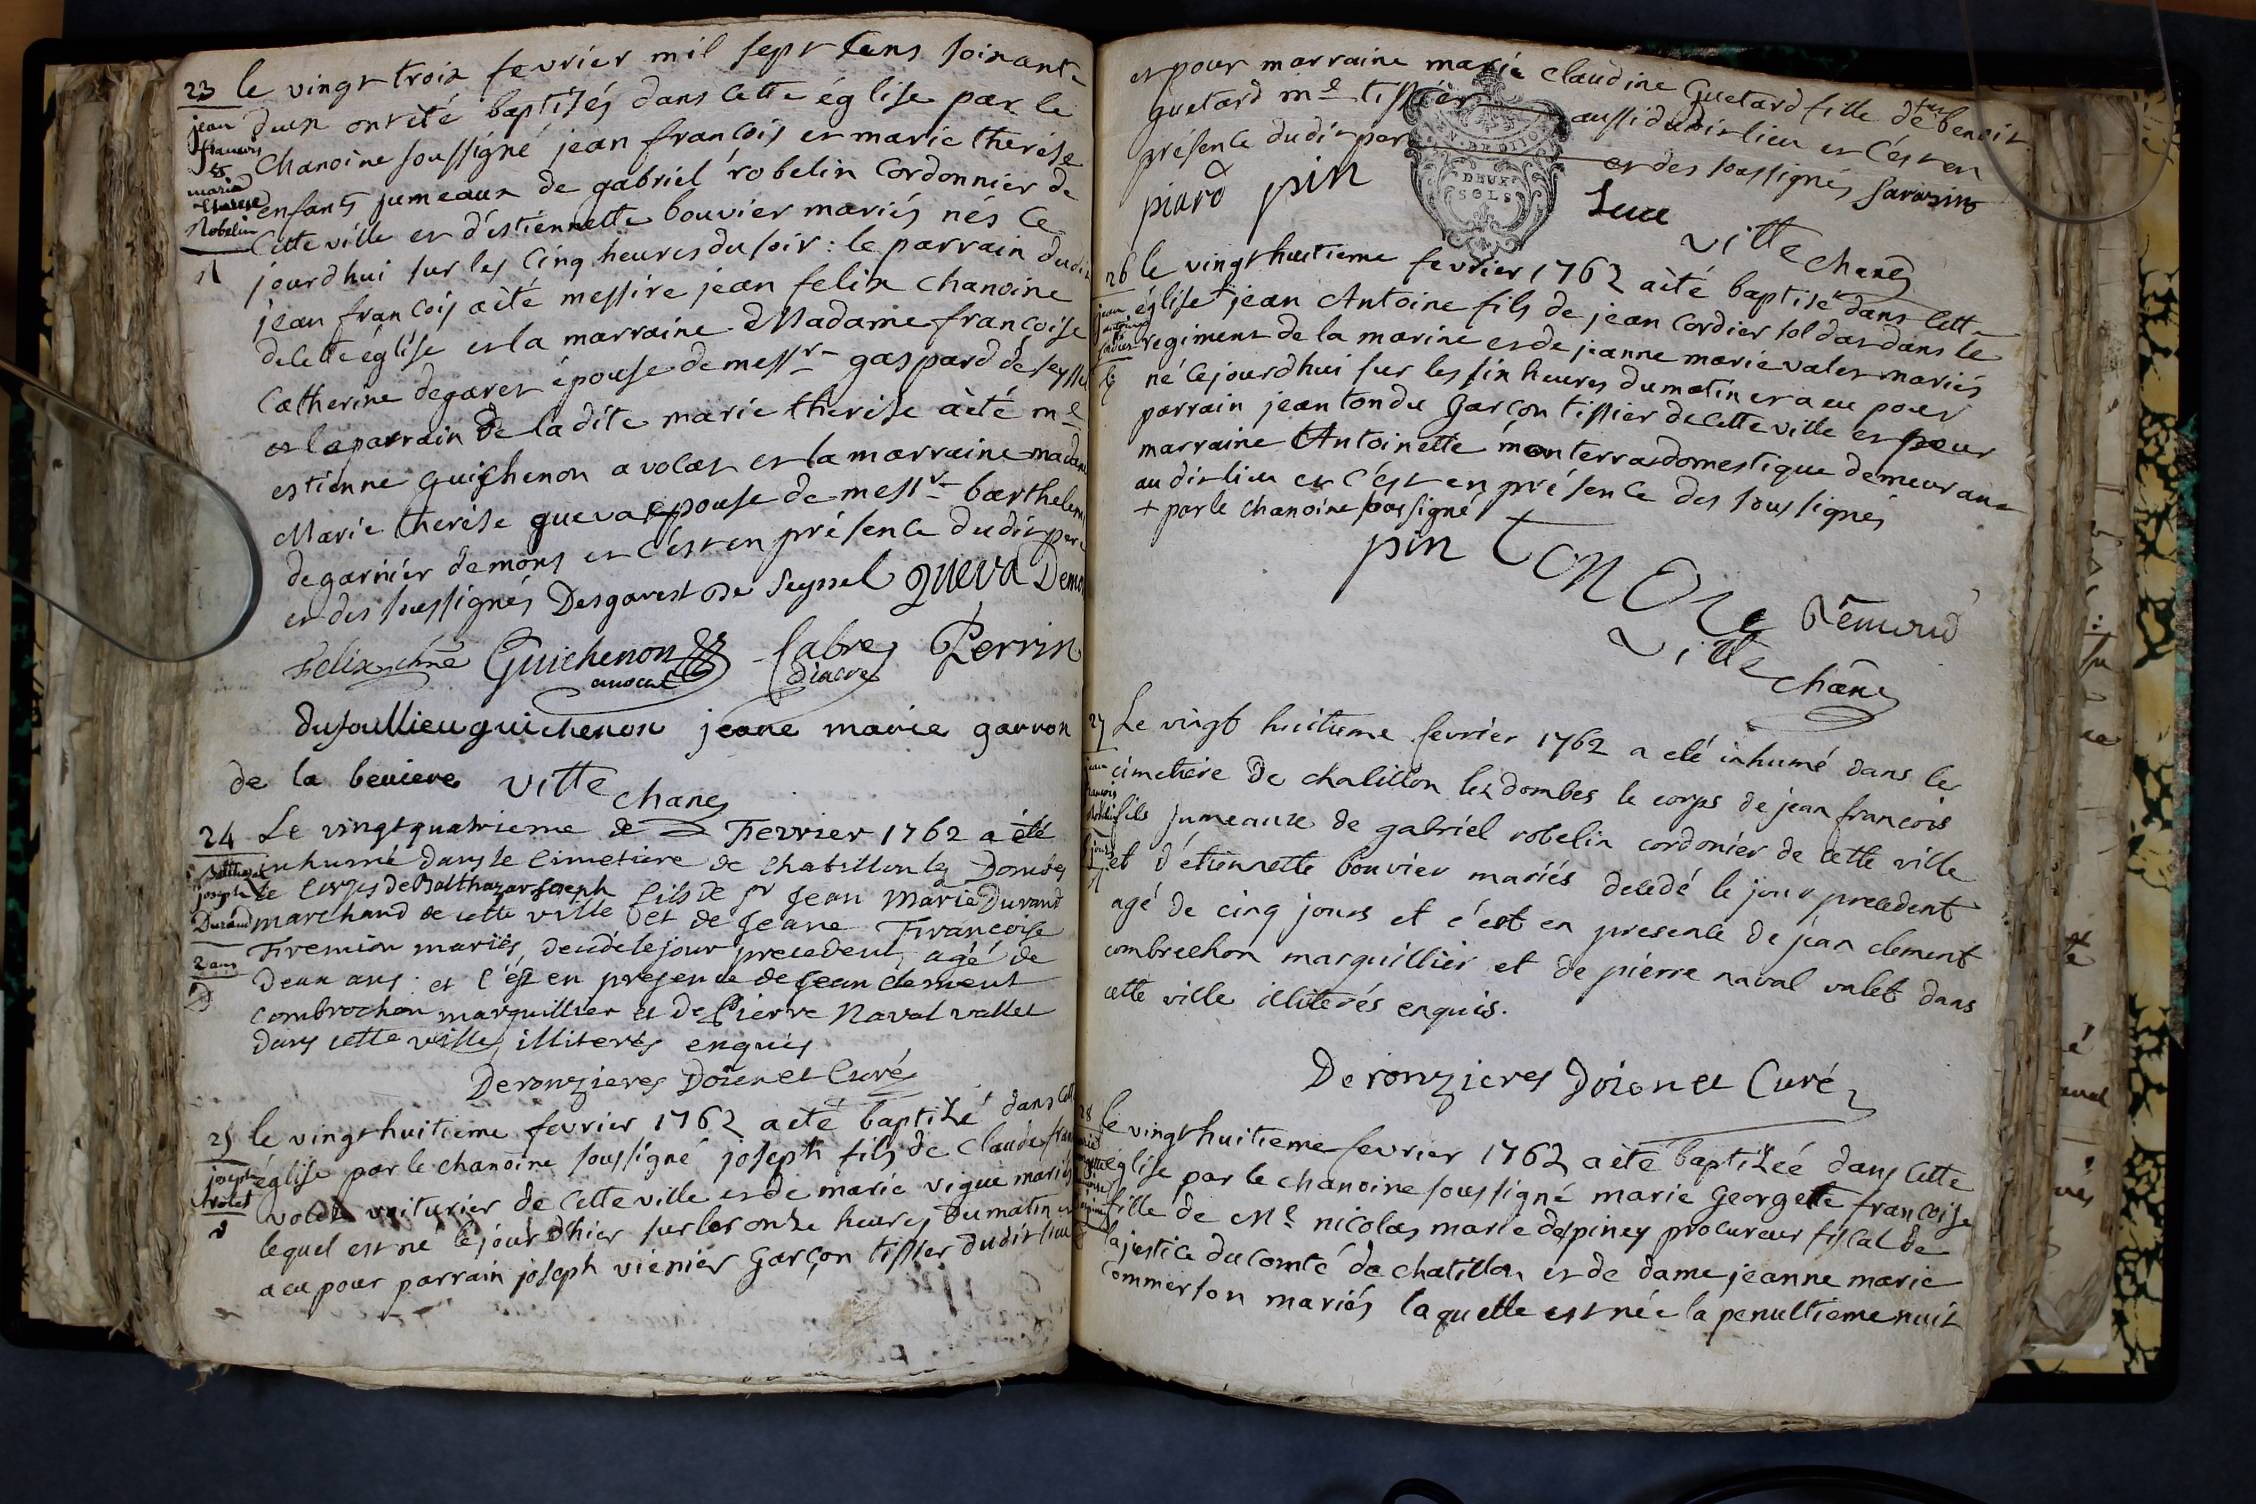 23 le vingt trois fevrier mil sept cens soixante
jean
francois
et
marie
therese
Robelin
deux ont été baptisés dans cette église par le
Chanoine soussigné jean francois et marie therése
enfants jumeaux de gabriel robelin Cordonnier de
Cette ville et d'estiennette bouvier mariés nés ce
jourdhui sur les Cinq heures du soir : le parrain dudit
jean françois a été messire jean felix chanoine
de cette église et la marraine Madame françoise
Catherine degaret épouse de messre gaspard de seyssel
et le parrain de la dite marie therése a été me
estienne Guichenon avocat et la marraine madame
Marie therése gueva epouse de messre barthelemi
degarnier demons et c'est en présence dudit pere
et des soussignés Desgarest De Seyssel queva Demons
Felix chne Guichenon avocat fabre diacre Perrin
dusoullieu guichenon jeane marie garron
de la beviere vitte chane
24 Le vingt quatrieme de Fevrier 1762 a été
Balthazar
joseph
Durand
2 ans
inhumé dans le Cimetiere de Chatillon les Dombes
le corps de Balthazar Joseph fils de sr Jean Marie Durand
marchand de cette ville et de Jeane Françoise
Fremion mariés, decedé le jour precedent, agé de
deux ans : et c'est en presence de Jean clement
combrochon marguillier et de Pierre Naval vallet
dans cette ville illiterés enquis
Deronzieres Doien et Curé
25 le vingt huitieme fevrier 1762 a été baptizé dans cette
joseph
Volet
église par le chanoine soussigné joseph fils de Claude fran
volet voiturier de Cette ville et de marie vigue mariés
lequel est né le jour d'hier sur les onze heures du matin et
a eu pour parrain joseph viénier Garçon tissier dudit lieu
et pour marraine marie Claudine Guetard fille de feu benoit
guetard me tissier aussi dudit lieu et c'est en
présence dudit pere et des soussignés sarazin
piard pin Luce
vitte chane
26 le vingt huitieme fevrier 1762 a été baptisé dans cette
jean
antoine
Cordier
église + jean Antoine fils de jean Cordier soldat dans le
regiment de la marine et de jeanne marie valet mariés
né cejourdhui sur les six heures du matin et a eu pour
parrain jean tondu Garçon tissier de cette ville et pour
marraine Antoinette monterrat domestique demeurant
au dit lieu et c'est en présence des soussignés
+ par le chanoine soussigné
pin tondu Rémond
vitte chane
27 Le vingt huitieme fevrier 1762 a eté inhumé dans le
jean
francois
Robelin
5 jours
cimetiere de chatillon les dombes le corps de jean francois
fils jumeaux de gabriel robelin cordonier de cette ville
et d'étiennette bouvier mariés decedé le jour precedent
agé de cinq jours et c'est en presence de jéan clement
combrechon marguillier et de pierre naval valet dans
cette ville illiterés enquis.
Deronzieres Doien et Curé
28 le vingt huitieme fevrier 1762 a été baptizéé dans Cette
église par le chanoine soussigné marie Georgette francoise
fille de Me nicolas marie despiney procureur fiscal de
la justice du Comté de chatillon et de dame jeanne marie
Commerson mariés laquelle est née la penultieme nuit
AN. DE DIJON
DEUX
SOLS